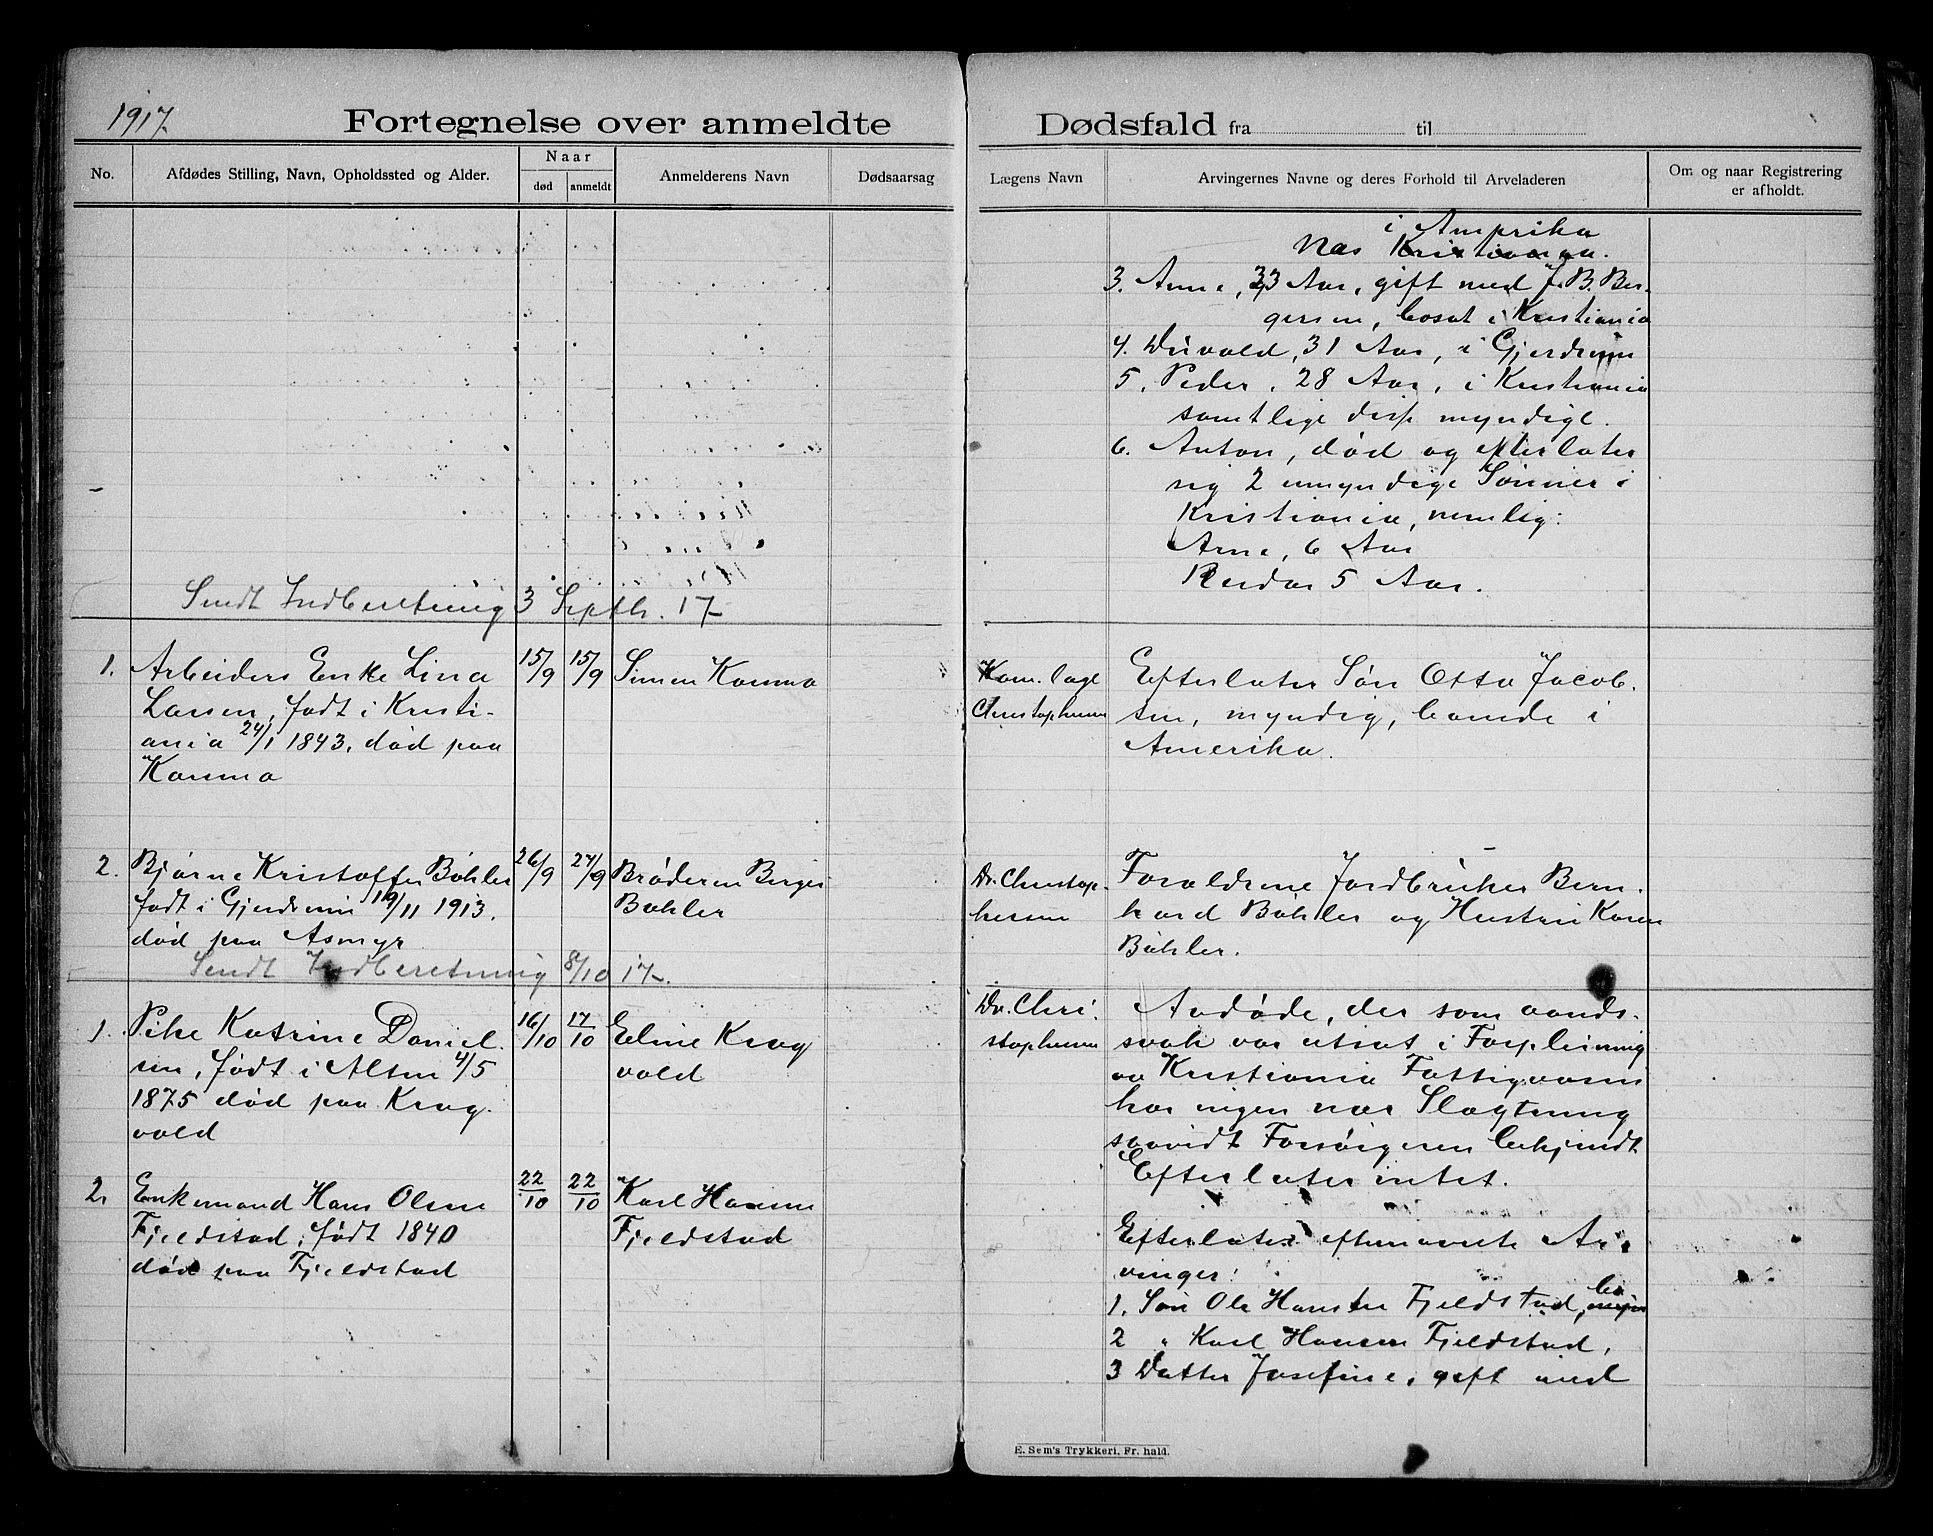 1917.
Fortegnelse over anmeldte
Dødsfald fra til
No.
Afdødes Stilling, Navn, Opholdssted og Alder.
Naar
død
anmeldt
Anmelderens Navn
Dødsaarsag
Lægens Navn
Arvingernes Navne og deres Forhold til Arveladeren
Om og naar Registrering
er afholdt.
i Amerika
Næs Kristiania.
3. Anne, 33 Aar, gift med J. B. Ber-
gersen, bosat i Kristiania
4. 31 Aar, i Gjerdrum
5. Peder, 28 Aar, i Kristiania
samtlige disse myndige.
6. Anton, død og efterlater
sig 2 umyndige Sønner i
Kristiania, nemlig:
Arne, 6 Aar
Reidar 5 Aar.
Sendt Indberetning 3 Septb. 17
1.
Arbeiders Enke Lina
Larsen, født i Kristi-
ania 24/1 1843, død paa
Kamma
15/9
15/9
Simen Kamma
Kom. læge
Christophersen
Efterlater Søn Otto Jacob-
sen, myndig, boende i
Amerika.
2.
Bjarne Kristoffer Bøhler
født i Gjerdrum 19/11 1913.
død paa Asmyr
26/9
27/9
Broderen Birger
Bøhler
Dr. Christop-
hersen
Forældrene Jordbruker Bern-
hard Bøhler og Hustru Karen
Bøhler.
Sendt Indberetning 8/10 17.
1.
Pike Katrine Daniel-
sen, født i Alsen 4/5
1875 død paa Krog-
vold
16/10
17/10
Eline Krog
vold
Dr. Chri-
stophersen
Avdøde, der som aands-
svak var utsat i Forpleining
av Kristiania Fattigvæsen
har ingen nær Slægtning
saavidt Forsørgeren bekjendt
Efterlater intet.
2.
Enkemand Hans Olsen
Fjeldstad, født 1840
død paa Fjeldstad
22/10
22/10
Karl Hansen
Fjeldstad
Efterlater eftnævnte Ar-
vinger:
1. Søn Ole Hansen Fjeldstad,
2 " Karl Hansen Fjeldstad,
3 Datter Josefine, gift med
E. Sem's Trykkeri, Fr. hald.